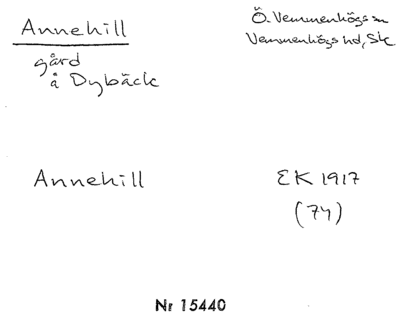 Annehill
Ö. Vemmenhögs sn
Vemmenhögs hd, Sk
gård
å Dybäck
Annehill
EK 1917
(74)
Nr 15440